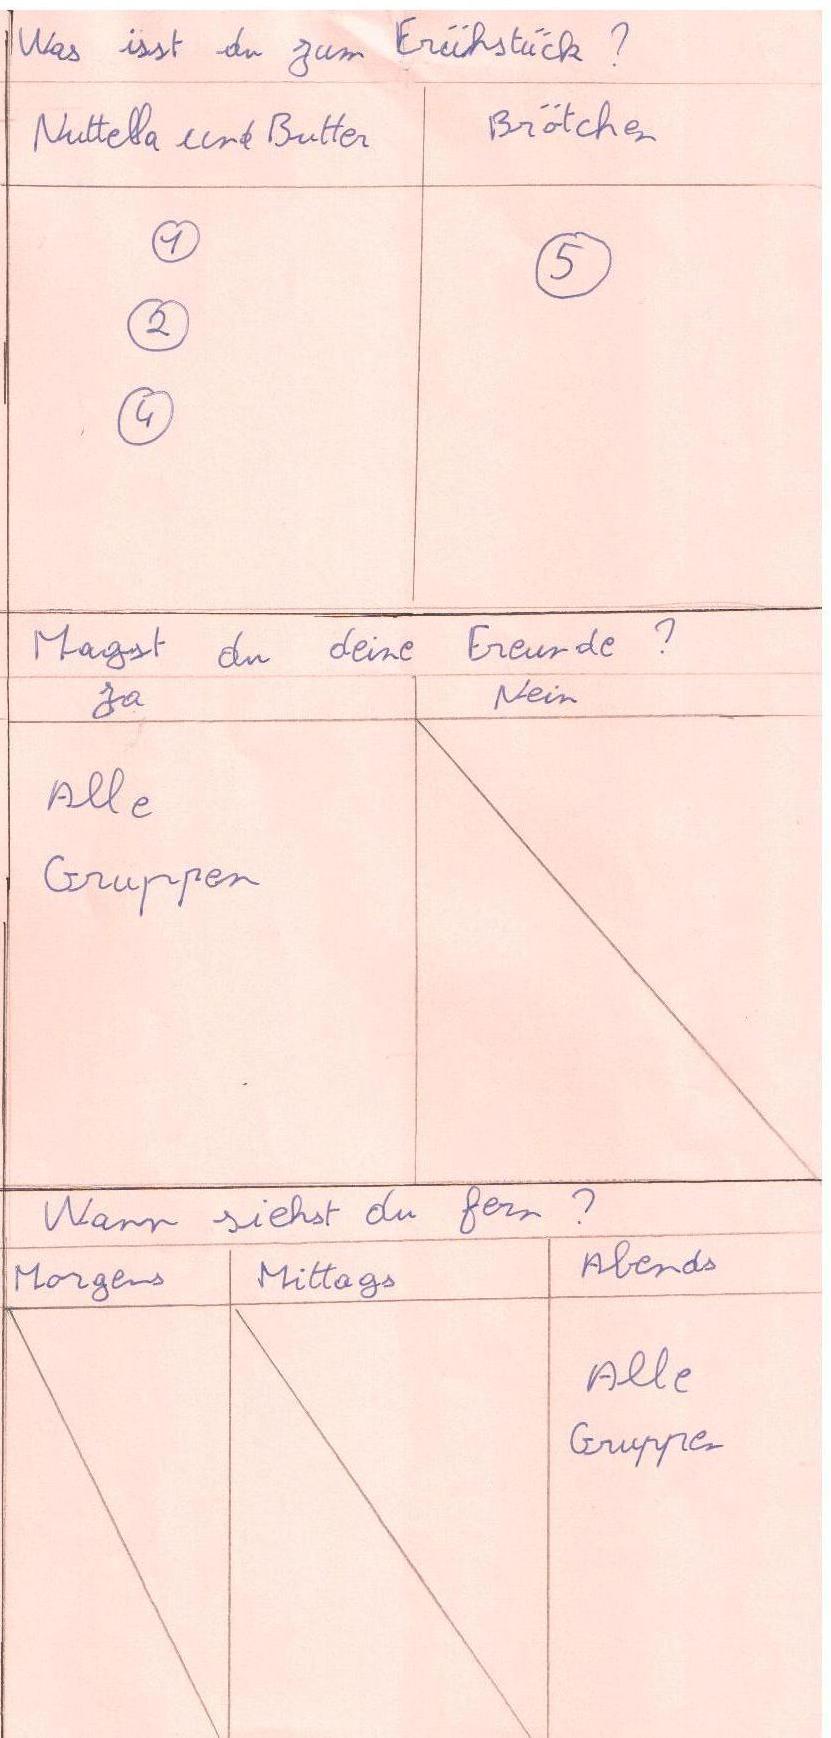 Was isst du zum Frühstück ?
Nuttella und Butter
Brötchen
1
5
2
4
Magst du deine Freunde ?
Ja
Nein
Alle
Gruppen
Wann siehst du fern ?
Morgens
Mittags
Abends
Alle
Gruppen